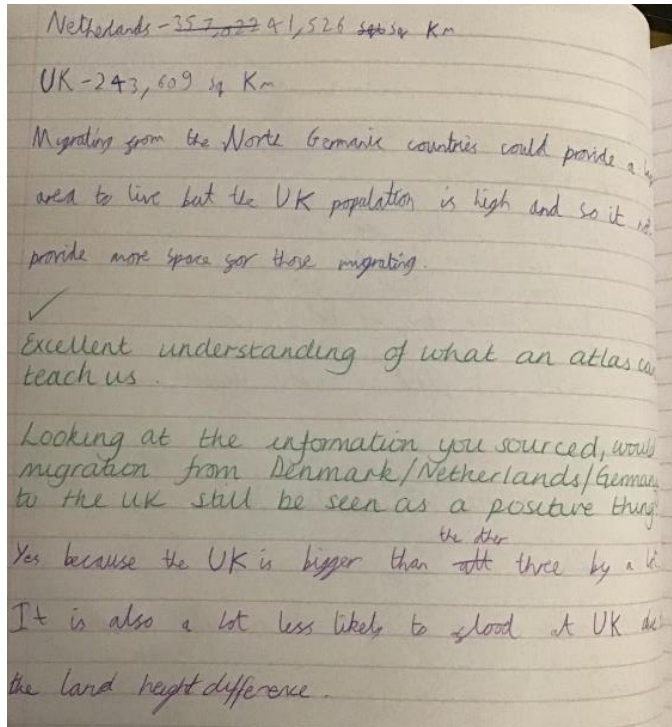 Netherlands - 357,022 41,526 sqb sq Km
UK - 243,609 sq Km
Migrating from the North Germanic countries could provide a
area to live but the UK population is high and so it
provide more space for those migrating.
✓
Excellent understanding of what an atlas ca
teach us.
Looking at the information you sourced, would
migration from Denmark/Netherlands/German
to the UK still be seen as a positive thing
the other
Yes because the UK is bigger than all three by a
It is also a lot less likely to flood at UK du
the land height difference.